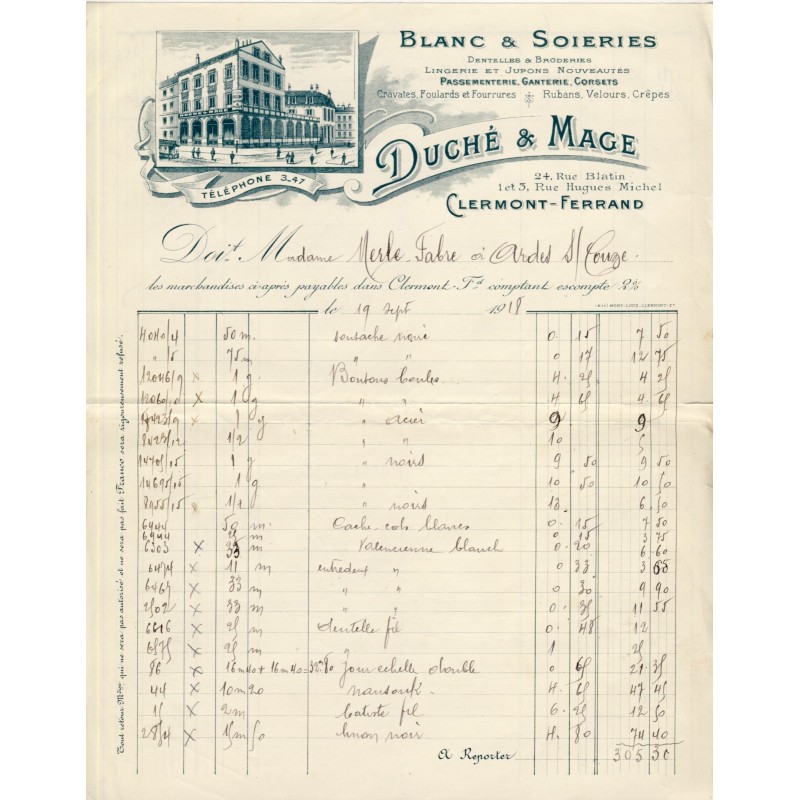 BLANC & SOIERIES
DENTELLES & BRODERIES
LINGERIE ET JUPONS NOUVEAUTÉS
PASSEMENTERIE, GANTERIE, CORSETS
Cravates, Foulards et Fourrures Rubans, Velours, Crêpes
DUCHÉ & MAGE
TÉLÉPHONE 3_47
24, Rue Blatin
1 et 3, Rue Hugues Michel
CLERMONT-FERRAND
Doit Madame Merle-Fabre à Ardes S/ Couze.
les marchandises ci-après payables dans Clermont-Fd comptant escompte 2%
le 19 Sept 1918
Tout retour Mdises qui ne sera pas autorisé et ne sera pas fait Franco sera rigoureusement refusé.
4040/4 50 m. soutache noire 0. 15 7 50
" /5 75 m " " 0 17 12 75
12046/9 x 1 g. Boutons boules 4. 25 4 25
x 1 g " " 4 65 4. 65
1 g " acier 9 9
1/2 " " 10 5
1 g " noirs 9 50 9 50
14695/15 1 g " 10 50 10 50
8955/15 1/2 " noirs 13 6. 50
6944 50 m. Cache-cols blancs 0. 15 7 50
6944 25 m 0 15 3 75
6303 x 33 m Valencienne blanch 0. 20 6 60
6474 x 11 m entredeux " 0 33 3 65
6467 x 33 m " " 0 30 9 90
2502 x 33 m " " 0. 35 11 55
6616 x 25 m dentelle fil 0. 48 12
6575 x 25 m " 1 25
86 x 16 m 40 + 16 m 40 = 32m80 Jour echelle double 0 65 21. 35
44 x 10 m 20 nansouk. 4. 65 47 45
15 x 2 m batiste fil 6. 25 12 50
x 15 m 50 linon noir 4. 80 74 40
A Reporter 305 30